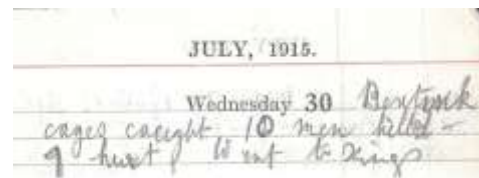 JULY, 1915.
Wednesday 30 Bentinck
cages caught 10 men killed -
9 hurt, Went to Kings